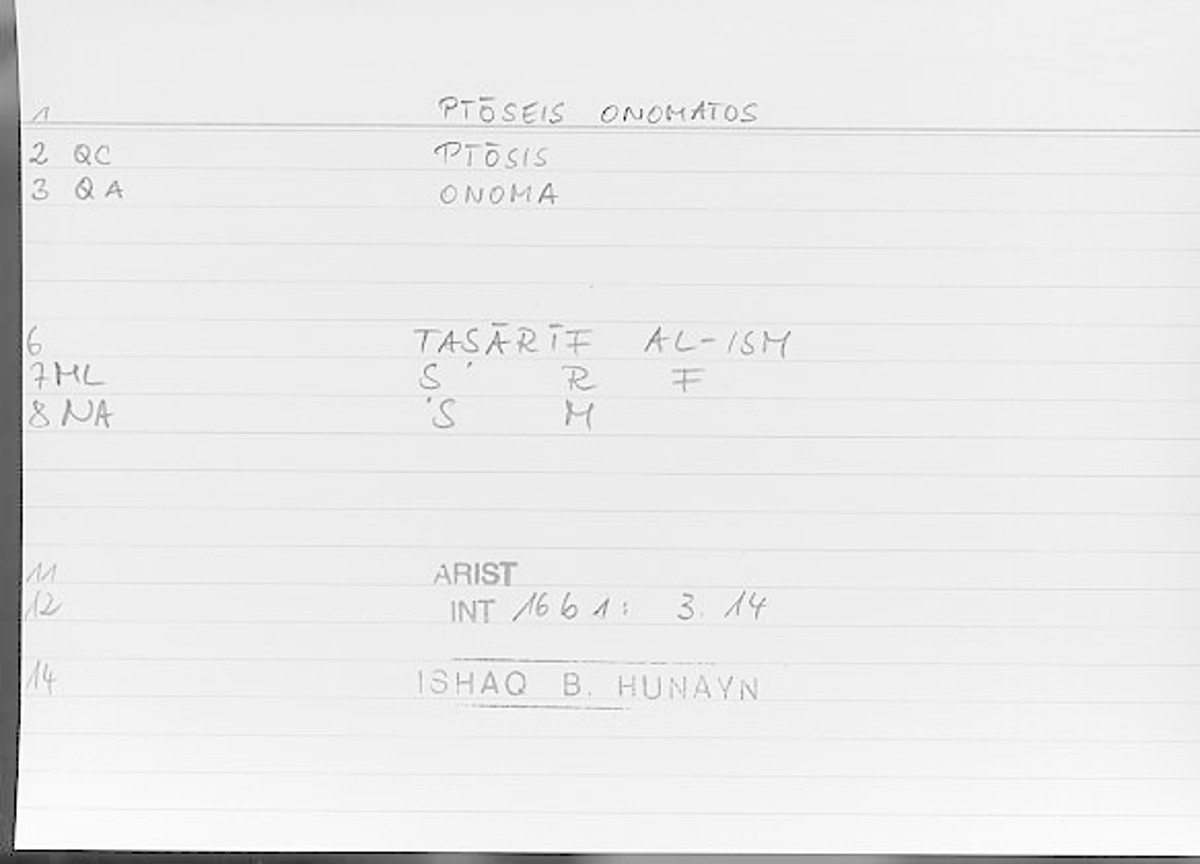 1 PTŌSEIS ONOMATOS
2 QC PTŌSIS
3 QA ONOMA
6 TASĀRĪF AL-ISM
7 ML S R F
8 NA 'S M
11 ARIST
12 INT 16 b 1: 3. 14
14 ISHAQ B. HUNAYN